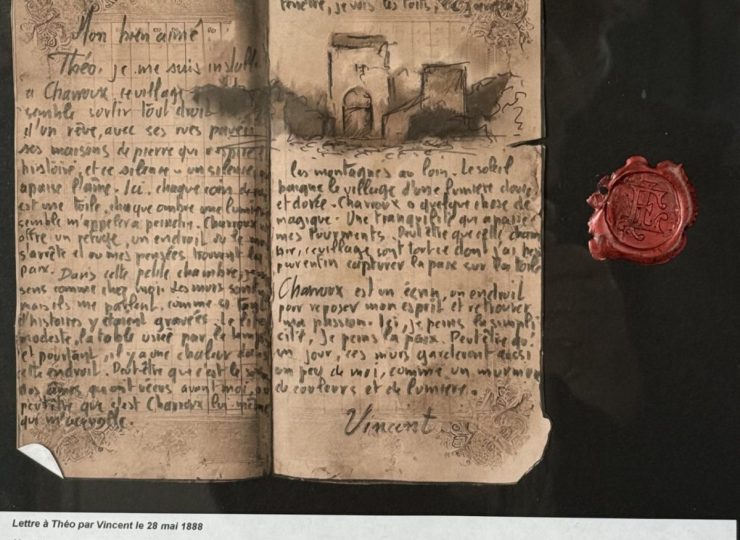 Mon bien aimé
Théo, je me suis install
a Charroux ce village
semble sortir tout droit
d'un rêve, avec ses rues pavées
ses maisons de pierre qui
histoire, et ce silence un silence
apaise l'âme. Ici, chaque coin de
est une toile, chaque ombre une lumière
semble m'appeler a peindre. Charroux
offre un refuge, un endroit ou le
s'arrête et ou mes pensées trouvent la
paix. Dans cette petite chambre, je
sens comme chez moi. Les murs sont
mais ils me parlent, comme si tant
d'histoires y étaient gravées. Le
modeste, la table usée par le temps
et pourtant, il y a une chaleur dans
cette endroit. Peut-être que c'est le
nos âmes qui ont vécus avant moi, ou
peut être que c'est Charroux lui même
qui m'accueille.
fenêtre, je vois les toits,
les montagnes au loin. Le soleil
baigne le village d'une lumière douce
et dorée. Charroux a quelque chose de
magique. Une tranquilité qui apaise
mes tourments. Peut être que cette
ce village sont tout ce dont j'ai
pour enfin capturer la paix sur ma toile
Charroux est un écrin, un endroit
pour reposer mon esprit et retrouver
ma passion. Ici, je peins la simpli
cité, je peins la paix. Peut être qu'
un jour, ces murs garderont aussi
un peu de moi, comme un murmure
de couleurs et de lumière.
Vincent.
Lettre à Théo par Vincent le 28 mai 1888